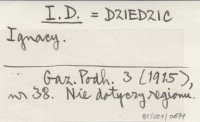 I.D. = DZIEDZIC
Ignacy.
Gaz. Podh. 3 (1915),
nr 38. Nie dotyczy regionu.